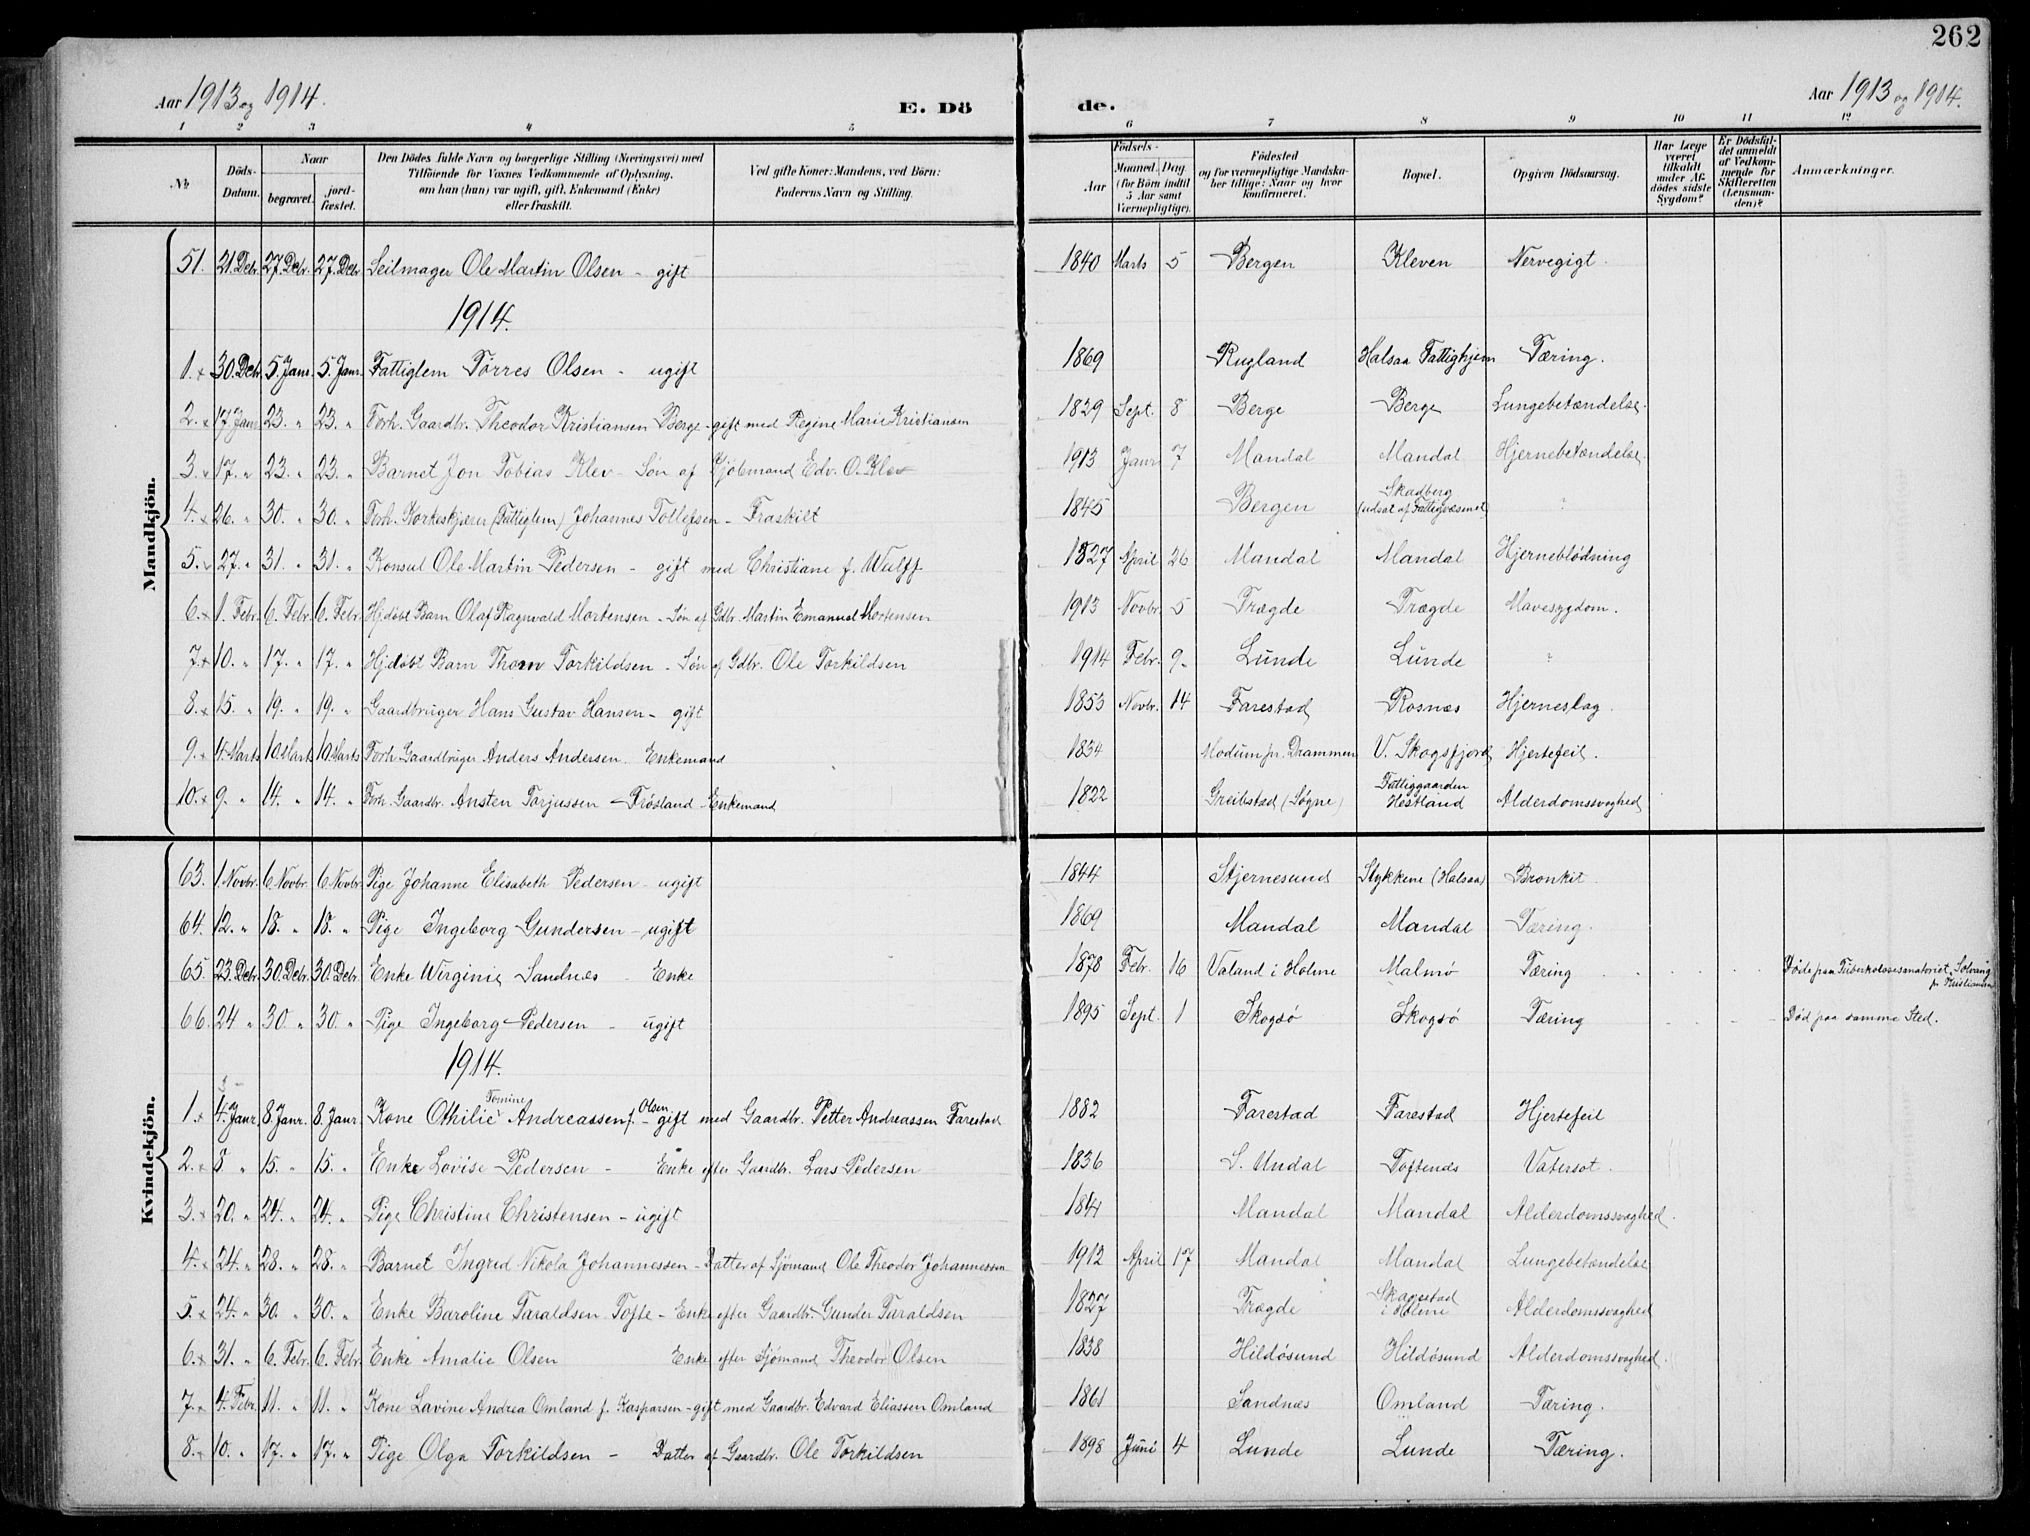 262
Aar 1913 og 1914.
E. Dö
de.
Aar 1913 og 1914.
1 2 3 4 5 6 7 8 9 10 11 12
No
Döds-Datum.
Naar
begravet.
jord-fæstet.
Den Dödes fulde Navn og borgerlige Stilling (Næringsvei) med
Tilföiende for Voxnes Vedkommende af Oplysning,
om han (hun) var ugift, gift, Enkemand (Enke)
eller fraskilt.
Ved gifte Koner: Mandens, ved Börn:
Faderens Navn og Stilling.
Födsels-
Aar
Maaned.
Dag.
(for Börn indtil
5 Aar samt
Værnepligtige).
Födested
og for værnepligtige Mandska-
ber tillige: Naar og hvor
konfirmeret.
Bopæl.
Opgiven Dödsaarsag.
Har Læge
været
tilkaldt
under Af-
dödes sidste
Sygdom?
Er Dödsfal-
det anmeldt
af Vedkom-
mende for
Skifteretten
(Lensman-
den)?
Anmærkninger.
Mandkjön.
51. 21. Debr. 27. Debr. 27. Debr. Seilmager Ole Martin Olsen - gift 1840 Marts 5 Bergen Kleven Nervegigt.
1914.
1. x 30. Debr. 5. Janr. 5. Janr. Fattiglem Tørres Olsen - ugift 1869 Rugland Halsaa Fattighjem Tæring.
2. x 17 Janr. 23. " 23. " Forh. Gaardbr. Theodor Kristiansen Berge - gift med Regine Marie Kristiansen 1829 Sept. 8 Berge Berge Lungebetændelse.
3. x 17. " 23. " 23. " Barnet Jon Tobias Klev - Søn af Kjøbmand Edv. O. Klev 1913 Janr. 7 Mandal Mandal Hjernebetændelse.
4. x 26. " 30. " 30. " Forh. Korkeskjærer (Fattiglem) Johannes Tollefsen - Fraskilt 1845 Bergen Skadberg (udsat af Fattigvæsenet) ?
5. x 27. " 31. " 31. " Konsul Ole Martin Pedersen - gift med Christiane f. Wulff 1827 April 26 Mandal Mandal Hjerneblødning
6. x 1. Febr. 6. Febr. 6. Febr. Hjdøbt Barn Olaf Ragnvald Mortensen - Søn af Gdbr. Martin Emanuel Mortensen 1913 Novbr. 5 Trægde Trægde Mavesygdom.
7. x 10. " 17. " 17. " Hjdøbt Barn Thorv Torkildsen - Søn af Gdbr. Ole Torkildsen 1914 Febr. 9. Lunde Lunde ?
8. x 15. " 19. " 19. " Gaardbruger Hans Gustav Hansen - gift 1853 Novbr. 14 Farestad Rosnæs Hjerneslag.
9. x 4. Marts 10. Marts 10. Marts Forh. Gaardbruger Anders Andersen. Enkemand 1834 Modum pr. Drammen V. Skogsfjord Hjertefeil.
10. x 9. " 14. " 14. " Forh. Gaardbr. Ansten Torjussen Frøsland - Enkemand 1822 Greibstad (Søgne) Fattiggaarden Hestland Alderdomssvaghed
Kvindekjön.
63. 1. Novbr. 6 Novbr. 6 Novbr. Pige Johanne Elisabeth Pedersen - ugift 1844 Stjernesund Stykkene (Halsaa) Bronkit.
64. 12. " 18. " 18. " Pige Ingeborg Gundersen - ugift 1869 Mandal Mandal Tæring.
65. 23. Debr. 30. Debr. 30. Debr. Enke Wirginie Sandnæs - Enke 1878 Febr. 16 Valand i Holme Malmø Tæring Døde paa Tuberkulosesanatoriet Solvang pr. Kristiansand
66. 24 " 30. " 30. " Pige Ingeborg Pedersen - ugift 1895 Sept. 1 Skogsø Skogsø Tæring Død paa samme Sted.
1914.
1. x 4. Janr. 8. Janr. 8. Janr. Kone Othilie Tomine Andreassen f. Olsen - gift med Gaardbr. Petter Andreassen Farestad 1882 Farestad Farestad Hjertefeil
2. x 8 " 15. " 15. " Enke Lovise Pedersen - Enke efter Gaardbr. Lars Pedersen 1836 S. Undal Toftenes Vatersot.
3. x 20. " 24. " 24. " Pige Christine Christensen - ugift 1841 Mandal Mandal Alderdomssvaghed.
4. x 24. " 28. " 28. " Barnet Ingrid Nikola Johannessen - Datter af Sjømand Ole Theodor Johannessen 1912 April 17 Mandal Mandal Lungebetændelse
5. x 24. " 30. " 30. " Enke Baroline Taraldsen Tofte - Enke efter Gaardbr. Gunder Taraldsen 1827 Trægde Skagestad i Holme Alderdomssvaghed
6. x 31. " 6. Febr. 6. Febr. Enke Amalie Olsen Enke efter Sjømand Theodor Olsen 1838 Hildøsund Hildøsund Alderdomssvaghed.
7. x 4. Febr. 11. " 11. " Kone Lavine Andrea Omland f. Kaspersen - gift med Gaardbr. Edvard Eliassen Omland 1861 Sandnæs Omland Tæring.
8. x 10. " 17. " 17. " Pige Olga Torkildsen - Datter af Gaardbr. Ole Torkildsen 1898 Juni 4 Lunde Lunde Tæring.